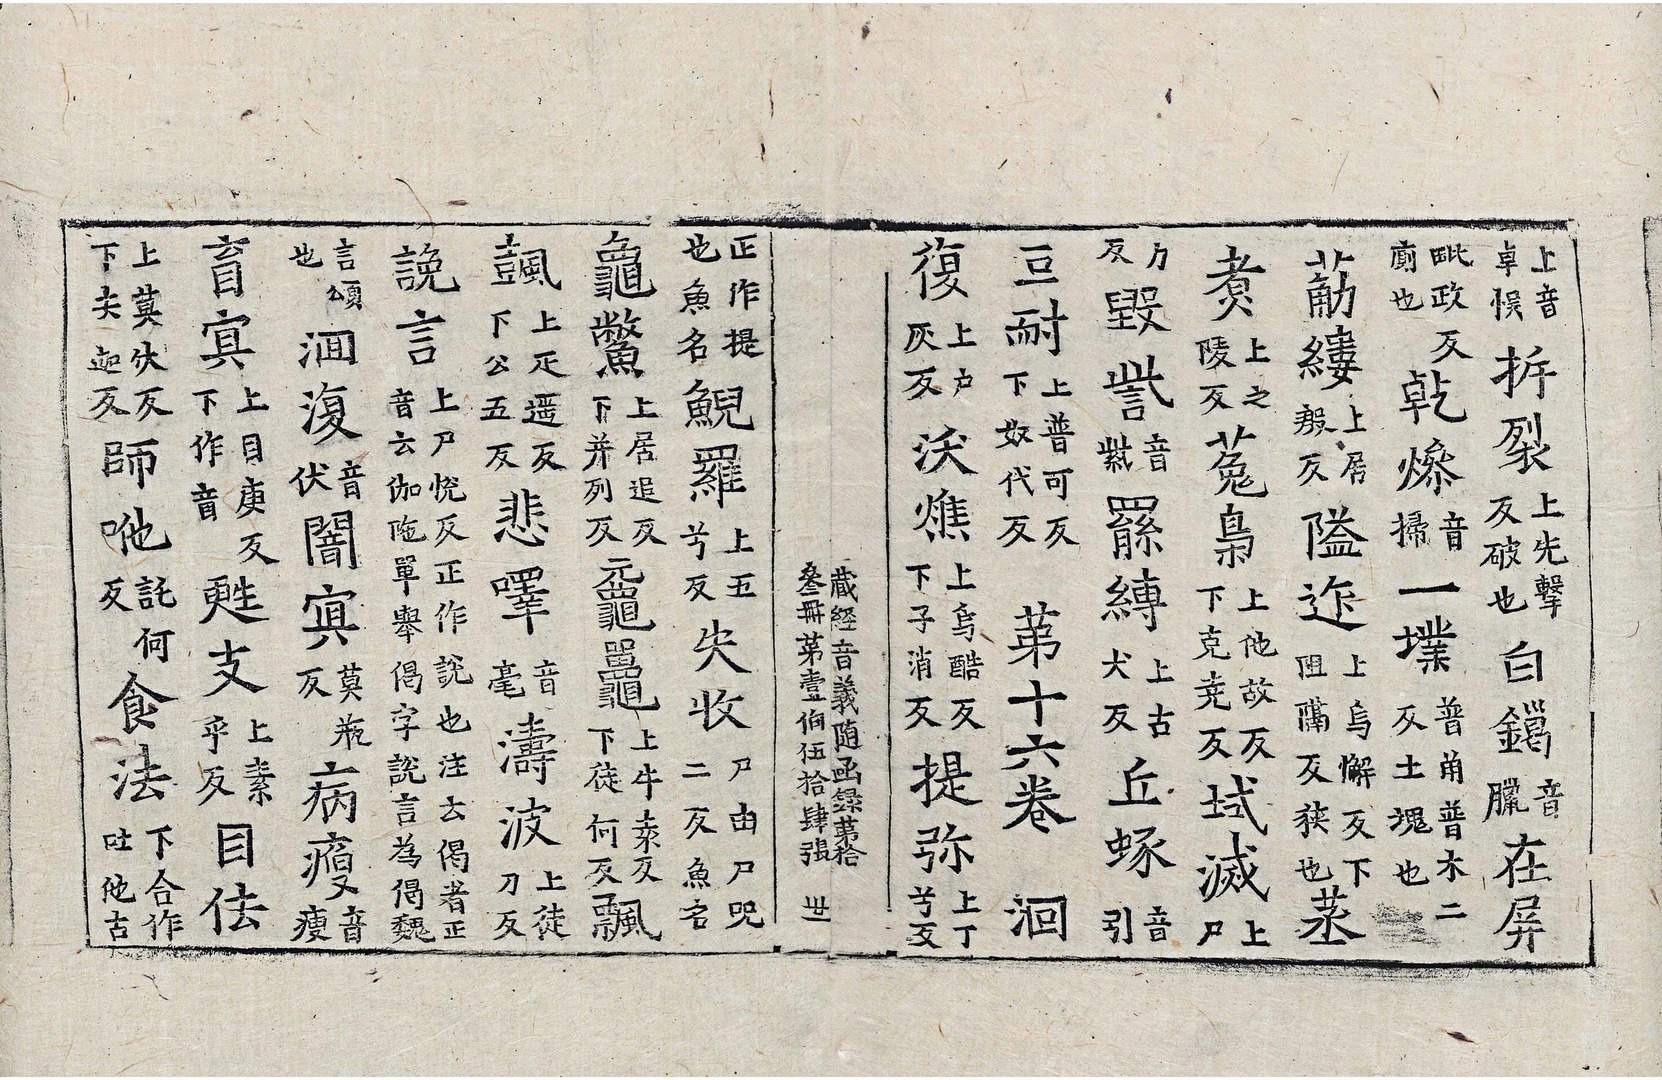 上音卓悮折裂上先擊反破也白鐊音臘在屏
毗政反廁也乾燥音掃一墣普角普木二反土塊也
葋縷上居殷反隘迮上烏懈反下阻䕎反狹也蒸
煑上之陵反菟梟上他故反下克尭反域滅上尸
力反毀訾音紫羂縛上古犬反丘蚓音引
叵耐上普可反下奴代反 第十六卷 洄
復上户灰反沃燋上烏酷反下子消反提弥上丁兮反
藏經音義隨函録第拾叄冊第壹伯伍拾肆張 丗
正作提也魚名鯢羅上五兮反失收尸由尸呪二反魚名
龜鱉上居追反下并列反黿鼉上牛袁反下徒何反飄
颽上疋遥反下公五反悲嘷音毫濤波上徒刀反
説言上尸悅反正作説也注云偈者正音云伽陁單舉偈字説言為偈魏
言頌也洄澓音伏闇㝠莫瓶反病瘦音瘦
盲㝠上目庚反下作盲甦支上素乎反目佉
上莫伏反下夫迦反師吔託何反食法下合作吐他古